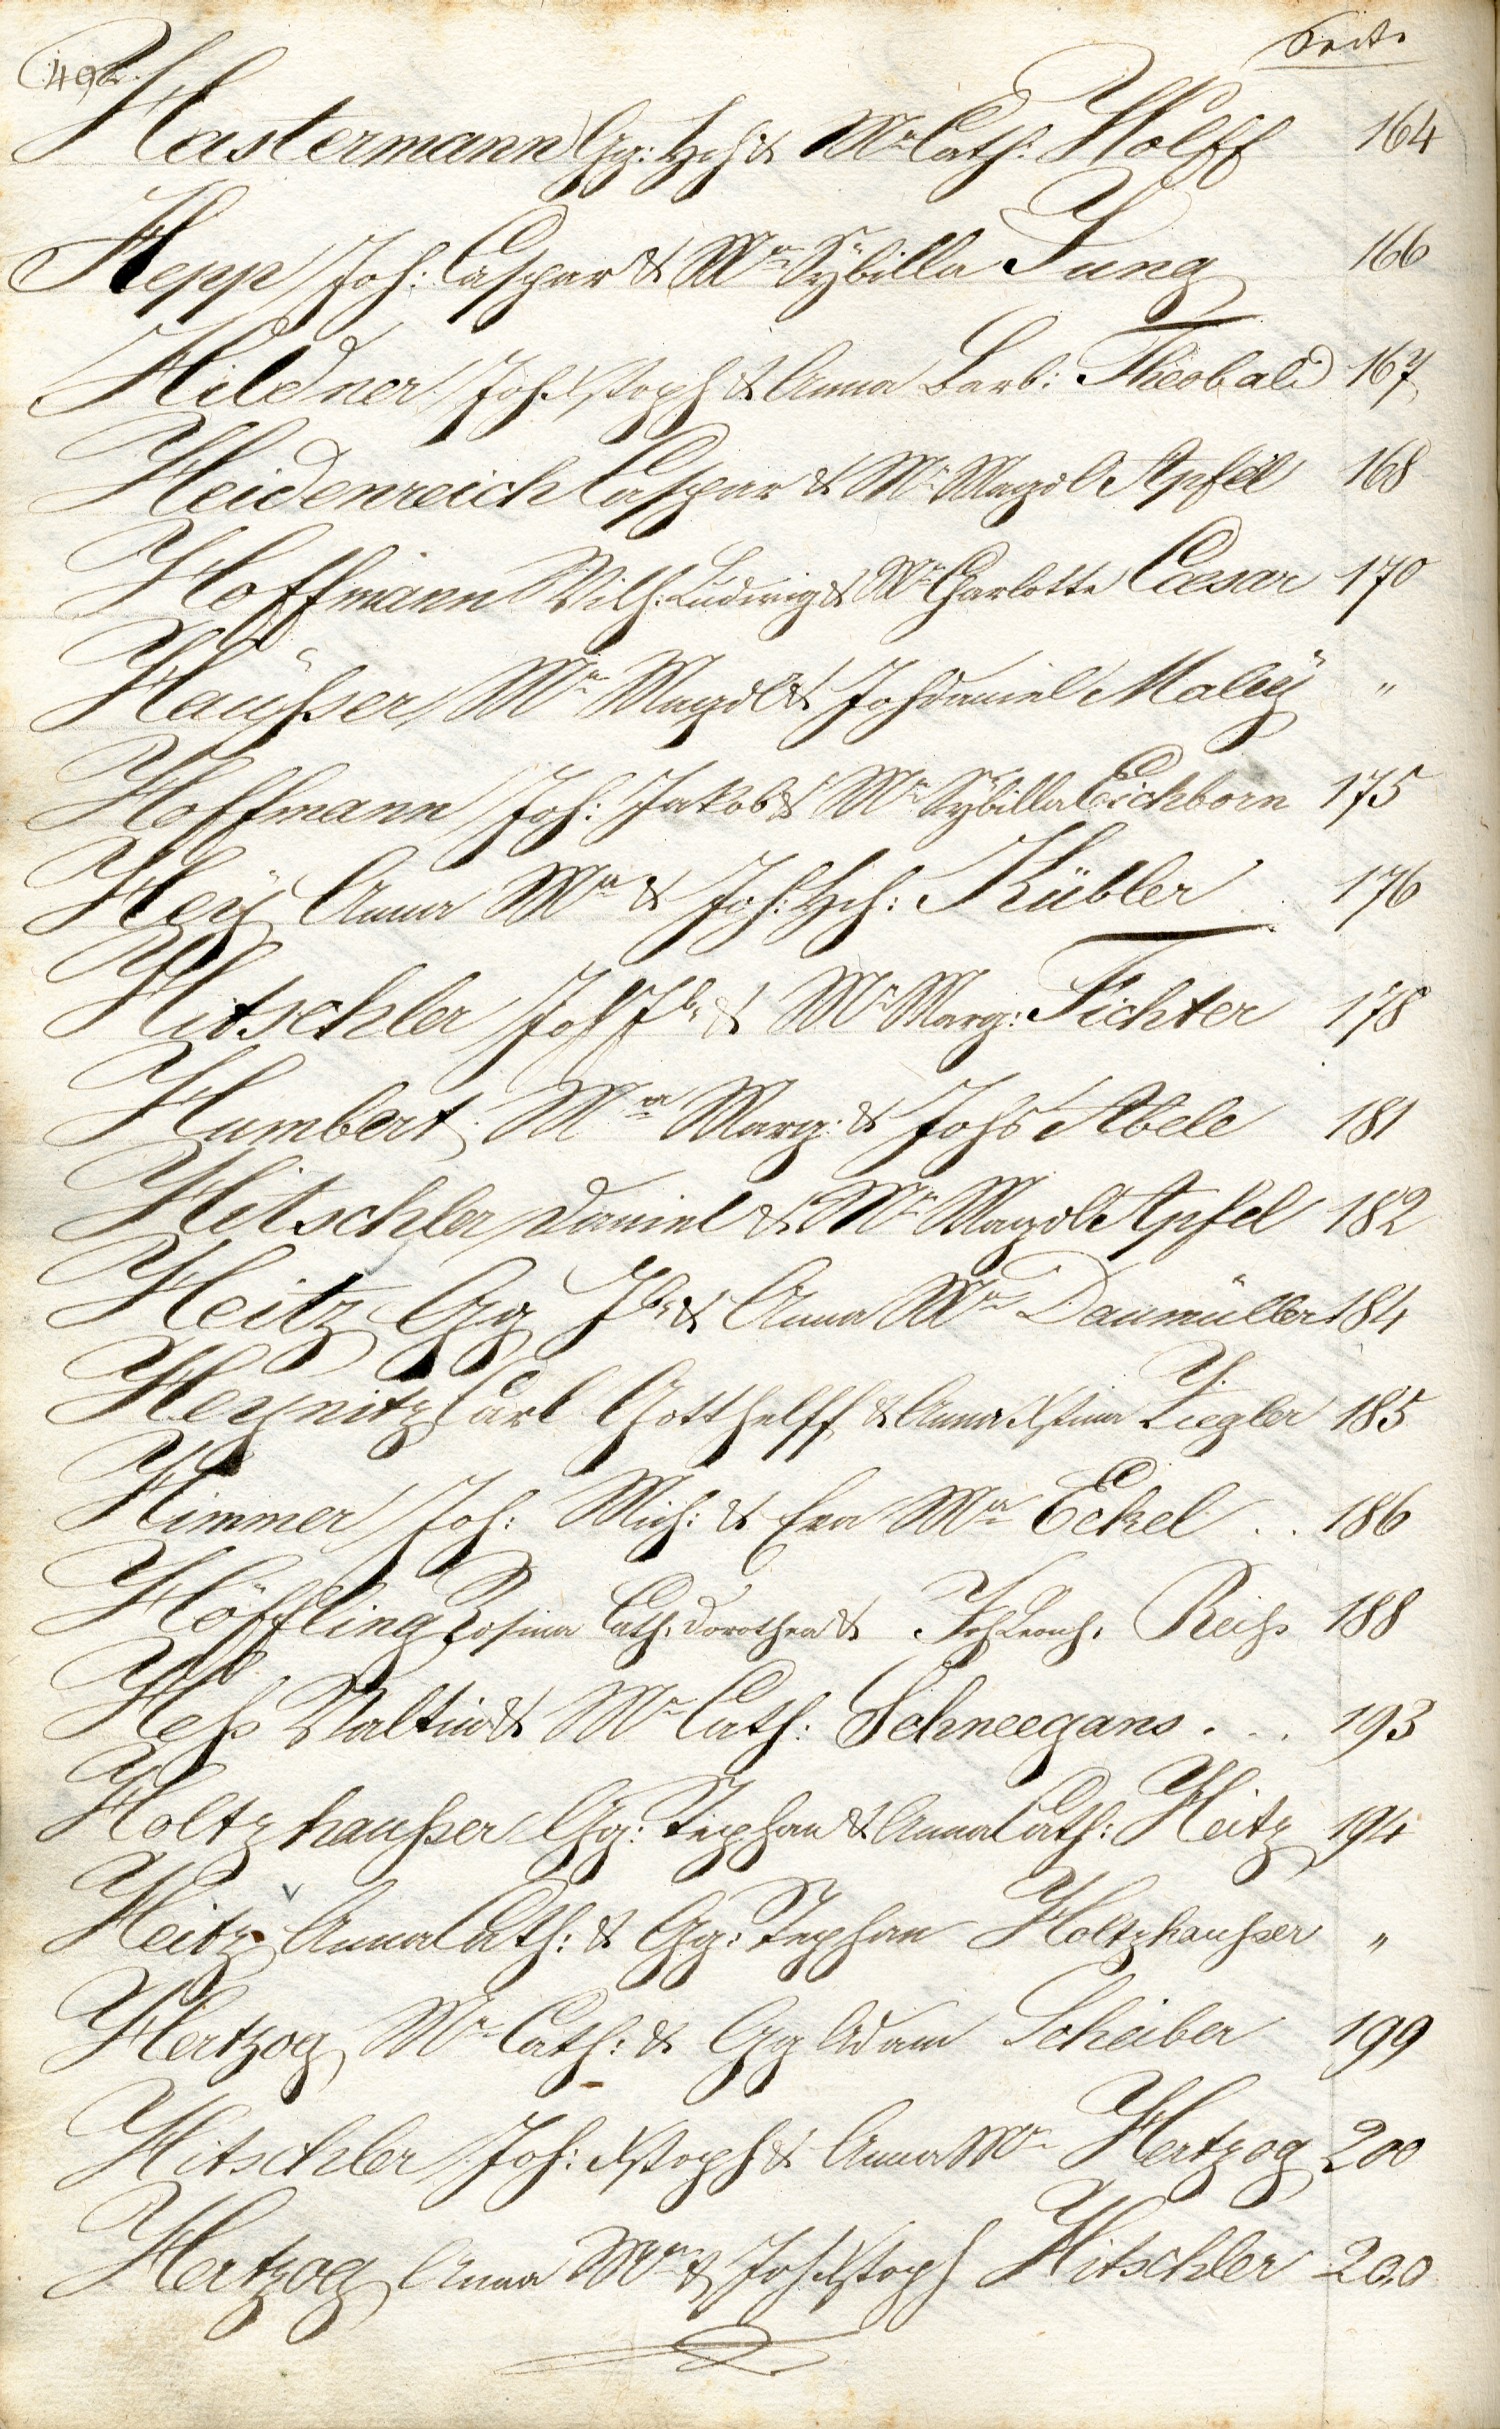 492.
Seite
Hastermann Gg: Hch & Ma Cath: Wolff 164
Hepp Joh: Caspar & Ma Sybilla Jung 166
Hildner Joh. Xstoph & Anna Barb: Theobald 167
Heidenreich Caspar & Ma Magdl Apfel 168
Hoffmann Wilh: Ludwig & Ma Charlotte Cæsar 170
Haüßer Ma Magdl & Joh daniel Maley "
Hoffmann Joh: Jakob & Ma Sybilla Eichborn 175
Heÿ Anna Ma & Joh: Hch: Kübler 176
Hitschler Joh Jb. & Ma Marg: Fichter 178
Humbert Ma Marg: & Johs Abele 181
Hitschler Daniel & Ma Magdl Apfel 182
Heitz Gg Jb. & Anna Ma Daumüller 184
Heynitz Carl Gotthelff & Anna Xstina Ziegler 185
Himmer Joh: Mich: & Eva Ma Eckel . . 186
Höffling Rosina Cath. Dorothea & Joh Leonh. Reihs 188
Hehs Valtin & Ma Cath: Schneegans . . . 193
Holtzhaußer Gg: Stephan & Anna Cath: Heitz 194
Heitz Anna Cath: & Gg: Stephan Holtzhaußer "
Hertzog Ma Cath: & Gg Adam Scheiber 199
Hitschler Joh: Xstoph & Anna Ma Hertzog 200
Hertzog Anna Ma & Joh Xstoph Hitschler 200